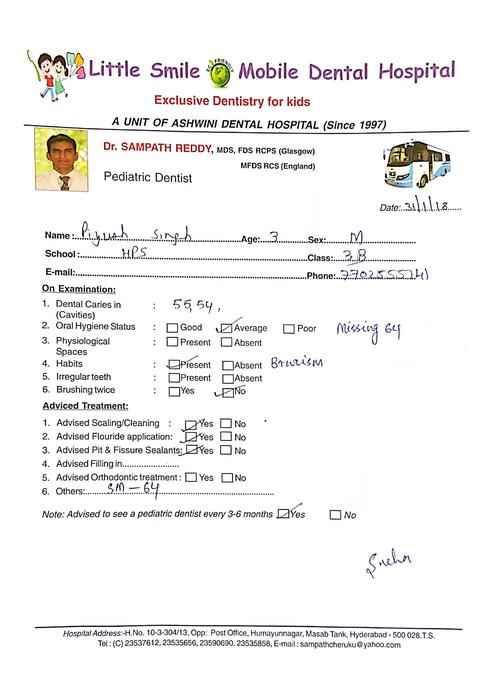 Little Smile Mobile Dental Hospital
Exclusive Dentistry for kids
A UNIT OF ASHWINI DENTAL HOSPITAL (Since 1997)
Dr. SAMPATH REDDY, MDS, FDS RCPS (Glasgow)
MFDS RCS (England)
Pediatric Dentist
Date: 31/1/18
Name: Piyush Singh Age: 3 Sex: M
School: HPS Class: 3B
E-mail: Phone:
On Examination:
1. Dental Caries in : 55, 54,
(Cavities)
2. Oral Hygiene Status : Good Average Poor Missing 64
3. Physiological : Present Absent
Spaces
4. Habits : Present Absent Bruxism
5. Irregular teeth : Present Absent
6. Brushing twice : Yes No
Adviced Treatment:
1. Advised Scaling/Cleaning : Yes No
2. Advised Flouride application: Yes No
3. Advised Pit & Fissure Sealants: Yes No
4. Advised Filling in
5. Advised Orthodontic treatment : Yes No
6. Others: SM - 64
Note: Advised to see a pediatric dentist every 3-6 months Yes No
Hospital Address:-H.No. 10-3-304/13, Opp: Post Office, Humayunnagar, Masab Tank, Hyderabad - 500 028.T.S.
Tel : (C) 23537612, 23535656, 23590690, 23535858, E-mail : sampathcheruku@yahoo.com